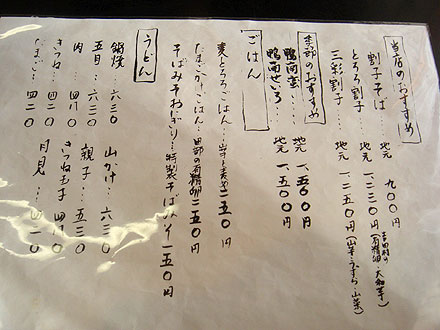 当店のおすすめ
割子そば 地元 九〇〇円
とろろ割子 地元 一、二三〇円
三彩割子 地元 一、二五〇円(山芋・うずら・山菜)
季節のおすすめ
鴨南蛮… 地元 一、五〇〇円
鴨南せいろ… 地元 一、五〇〇円
ごはん
麦とろろごはん… 二五〇円
たまごかけごはん… 二五〇円
そばみそおにぎり… 特製そばみそ 一五〇円
うどん
鍋焼 六三〇
五目… 六三〇
肉… 四八〇
きつね… 四二〇
たまご… 四二〇
山かけ… 六三〇
親子… 五三〇
きつね玉子 四八〇
月見… 四一〇